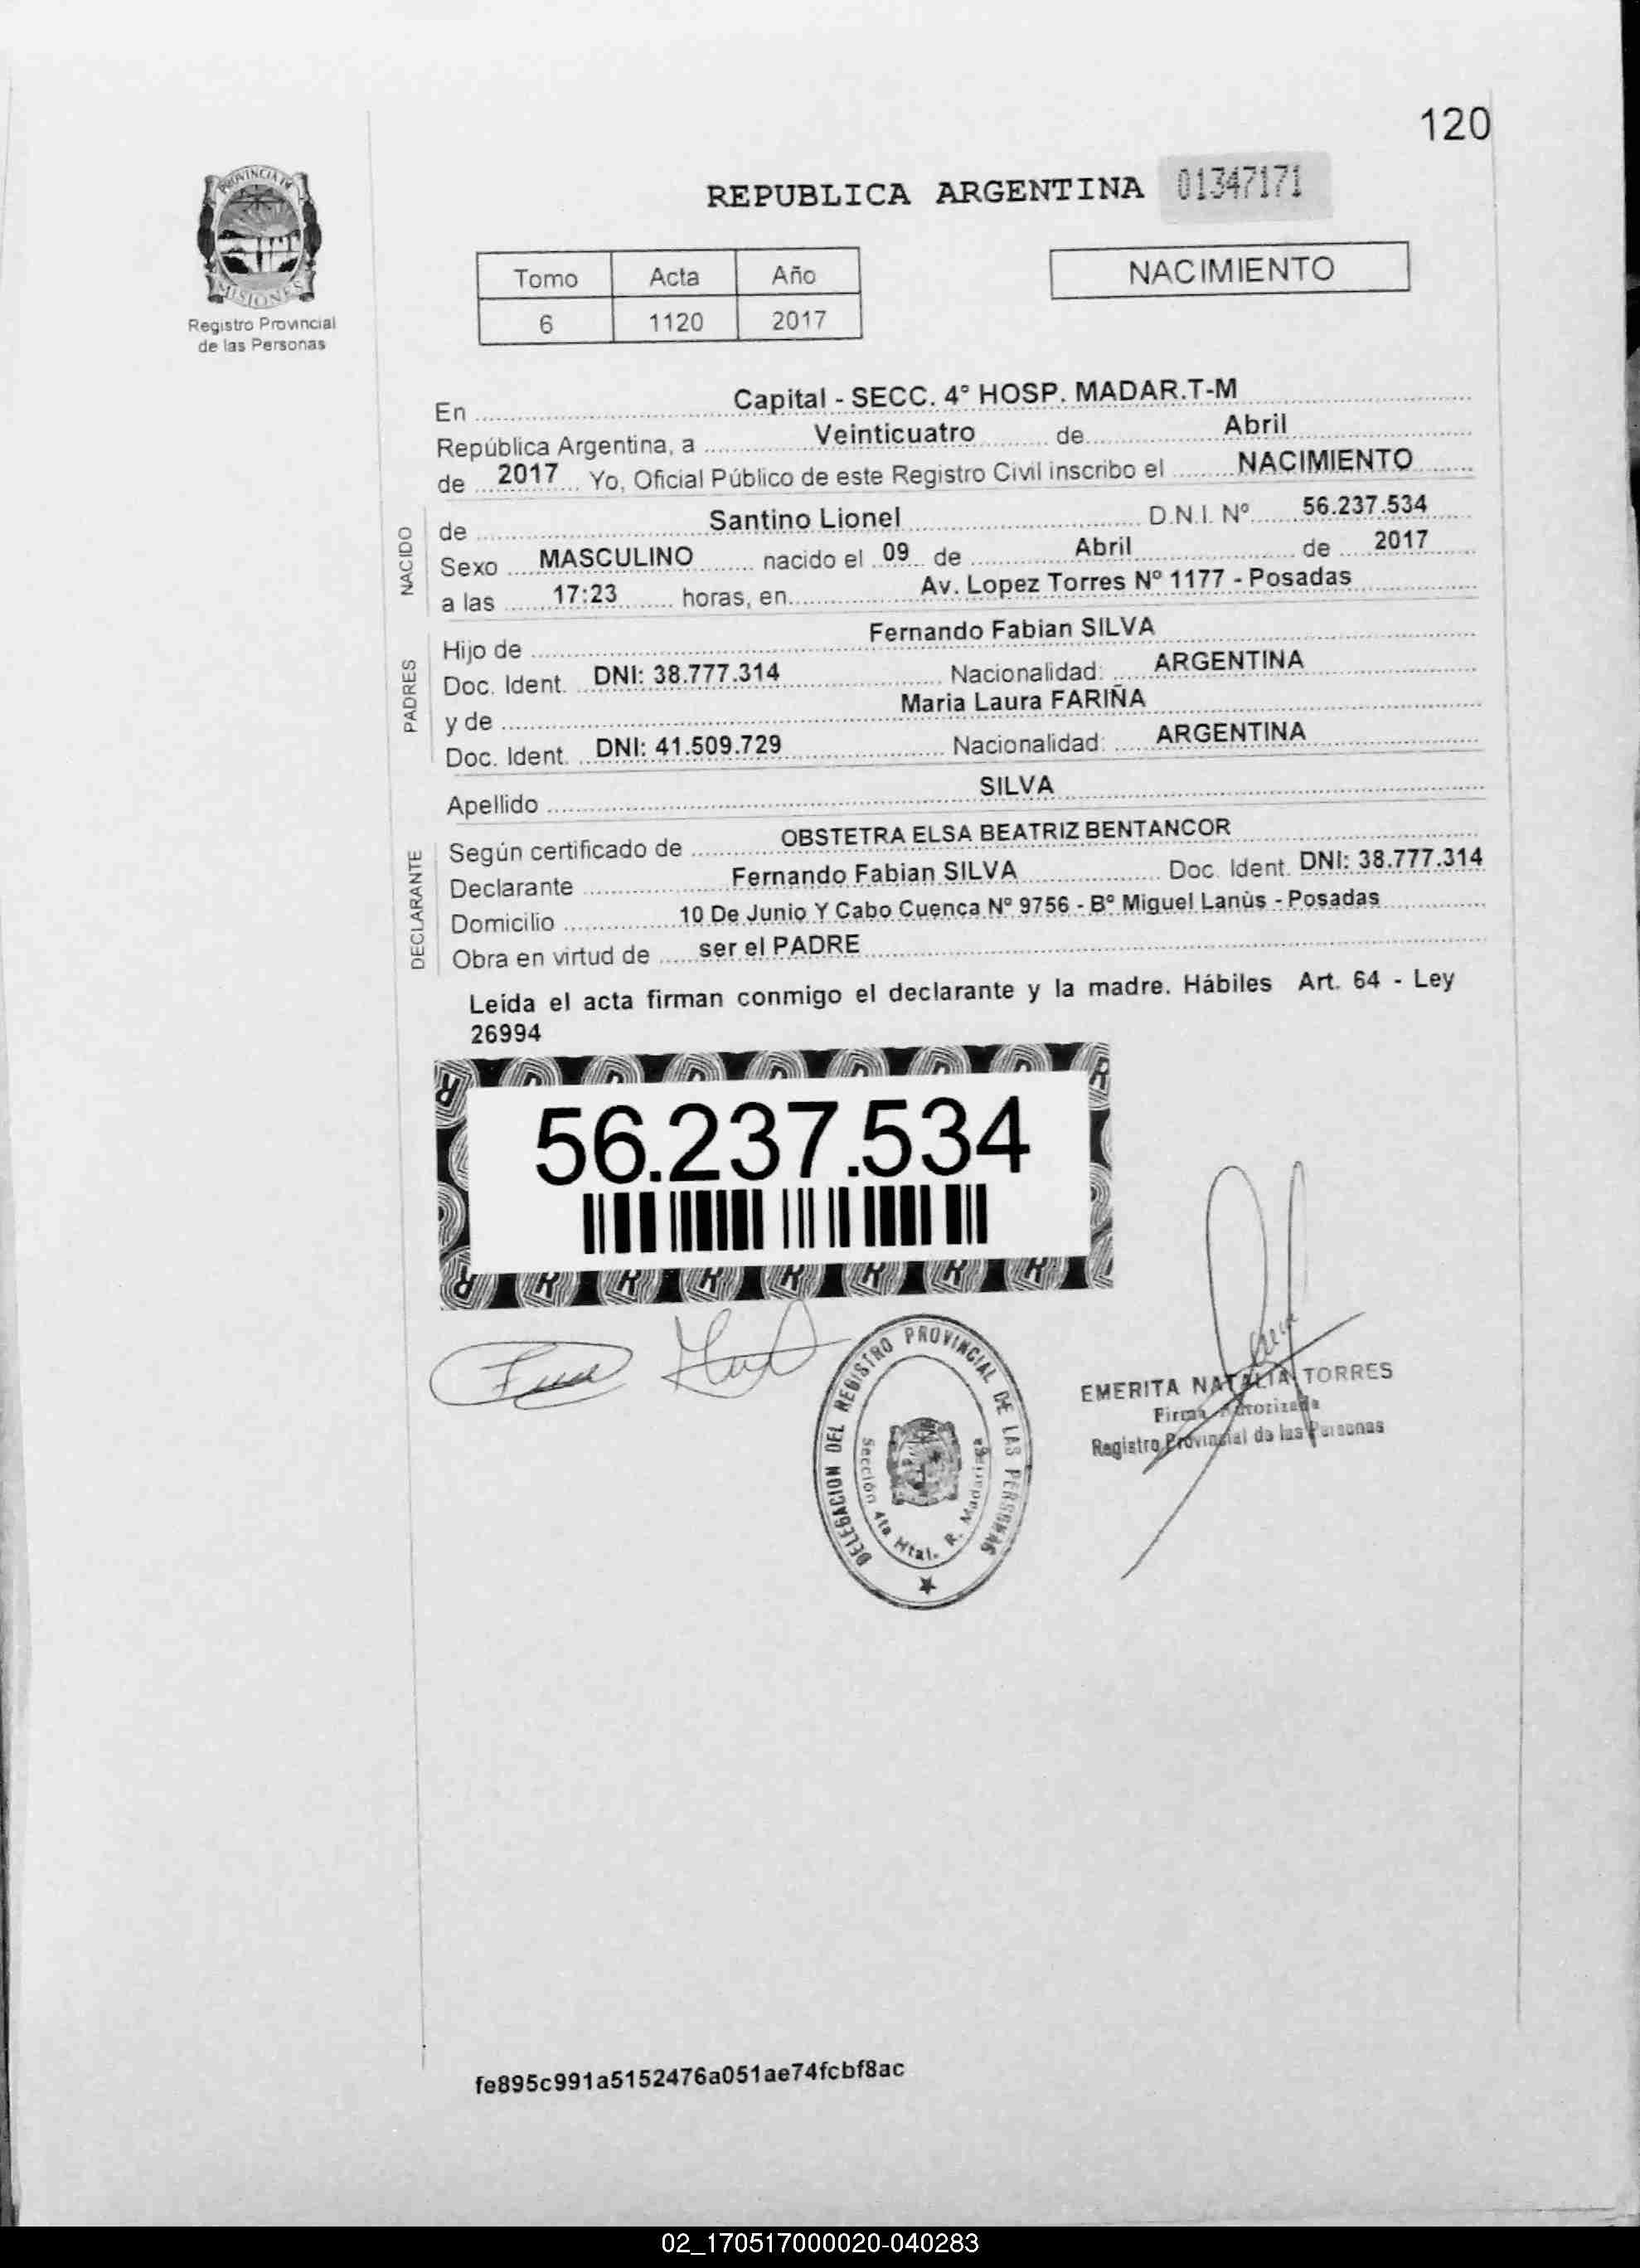 120
PROVINCIA DE
MISIONES
Registro Provincial
de las Personas
REPUBLICA ARGENTINA 01347171
Tomo Acta Año
6 1120 2017
NACIMIENTO
En Capital - SECC. 4° HOSP. MADAR.T-M
República Argentina, a Veinticuatro de Abril
de 2017 Yo, Oficial Público de este Registro Civil inscribo el NACIMIENTO
NACIDO
de Santino Lionel D.N.I. Nº 56.237.534
Sexo MASCULINO nacido el 09 de Abril de 2017
a las 17:23 horas, en Av. Lopez Torres Nº 1177 - Posadas
PADRES
Hijo de Fernando Fabian SILVA
Doc. Ident. DNI: 38.777.314 Nacionalidad: ARGENTINA
y de Maria Laura FARIÑA
Doc. Ident. DNI: 41.509.729 Nacionalidad: ARGENTINA
Apellido SILVA
DECLARANTE
Según certificado de OBSTETRA ELSA BEATRIZ BENTANCOR
Declarante Fernando Fabian SILVA Doc. Ident. DNI: 38.777.314
Domicilio 10 De Junio Y Cabo Cuenca Nº 9756 - Bº Miguel Lanùs - Posadas
Obra en virtud de ser el PADRE
Leída el acta firman conmigo el declarante y la madre. Hábiles Art. 64 - Ley
26994
56.237.534
DELEGACION DEL REGISTRO PROVINCIAL DE LAS PERSONAS
Sección 4ta Htal. R. Madariaga
EMERITA NATALIA TORRES
Firma Autorizada
Registro Provincial de las Personas
fe895c991a5152476a051ae74fcbf8ac
02_170517000020-040283